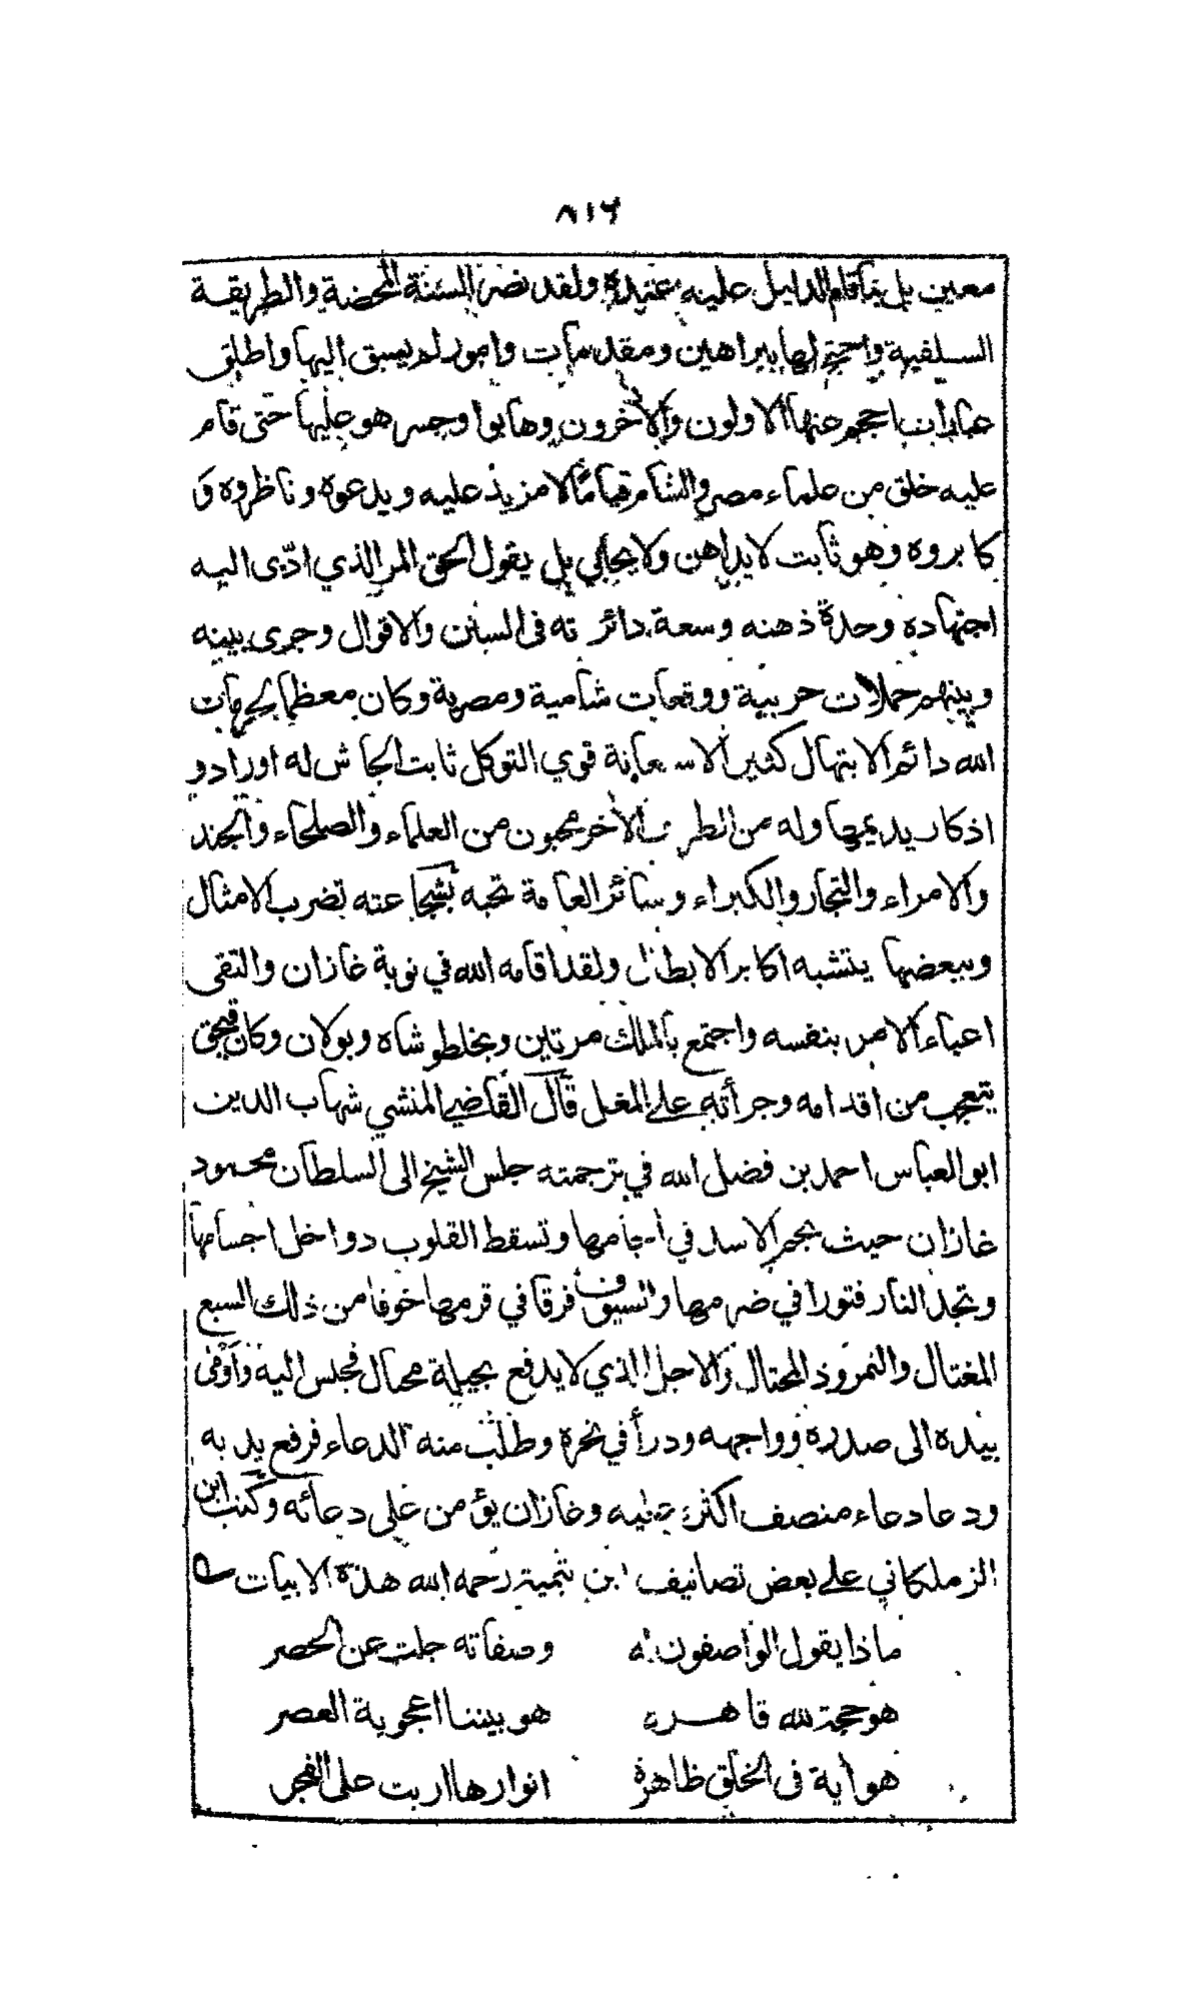 ٨١٦
معين بل بما قام الدليل عليه عنده ولقد نصر السنة المحضة والطريقة
السلفية واحتج لها ببراهين ومقدمات وامور لم يسبق اليها واطلق
عبارات احجم عنها الاولون والاخرون وهابوا وجسر هو عليها حتى قام
عليه خلق من علماء مصر والشام قياما لا مزيد عليه وبدعوه وناظروه و
كابروه وهو ثابت لا يداهن ولا يحابي بل يقول الحق المر الذي ادّى اليه
اجتهاده وحدة ذهنه وسعة دائرته فى السنن والاقوال وجرى بينه
وبينهم حملات حربية ووقعات شامية ومصرية وكان معظما لحرمات
الله دائم الابتهال كثير الاستعانة قوي التوكل ثابت الجاش له اوراد و
اذكار يديمها وله من الطرف الأخر محبون من العلماء والصلحاء والجند
والامراء والتجار والكبراء وسائر العامة تحبه بشجاعته تضرب الامثال
وببعضها يتشبه اكابر الابطال ولقد اقامه الله في نوبة غازان والتقى
اعباء الامر بنفسه واجتمع بالملك مرتين وبخلطو شاه وبولان وكان قبجق
يتعجب من اقدامه وجرأته على المغل قال القاضي المنشي شهاب الدين
ابو العباس احمد بن فضل الله في ترجمته جلس الشيخ الى السلطان محمود
غازان حيث تجم الاسد في اجامها وتسقط القلوب دواخل اجسامها
وتجد النار فتورا في ضرمها والسيوف فرقا في قرمها خوفا من ذلك السبع
المغتال والنمروذ المحتال والاجل الذي لا يدفع بحيلة محتال فجلس اليه واومى
بيده الى صدره وواجهه ودرأ في نحره وطلب منه الدعاء فرفع يديه
ودعا دعاء منصف اكثره عليه وغازان يؤمن على دعائه وكتب ابن
الزملكاني على بعض تصانيف ابن تيمية رحمه الله هذه الابيات
ماذا يقول الواصفون له وصفاته جلت عن الحصر
هو حجة لله قاهرة هو بيننا اعجوبة العصر
هو أية فى الخلق ظاهرة انوارها اربت على الفجر